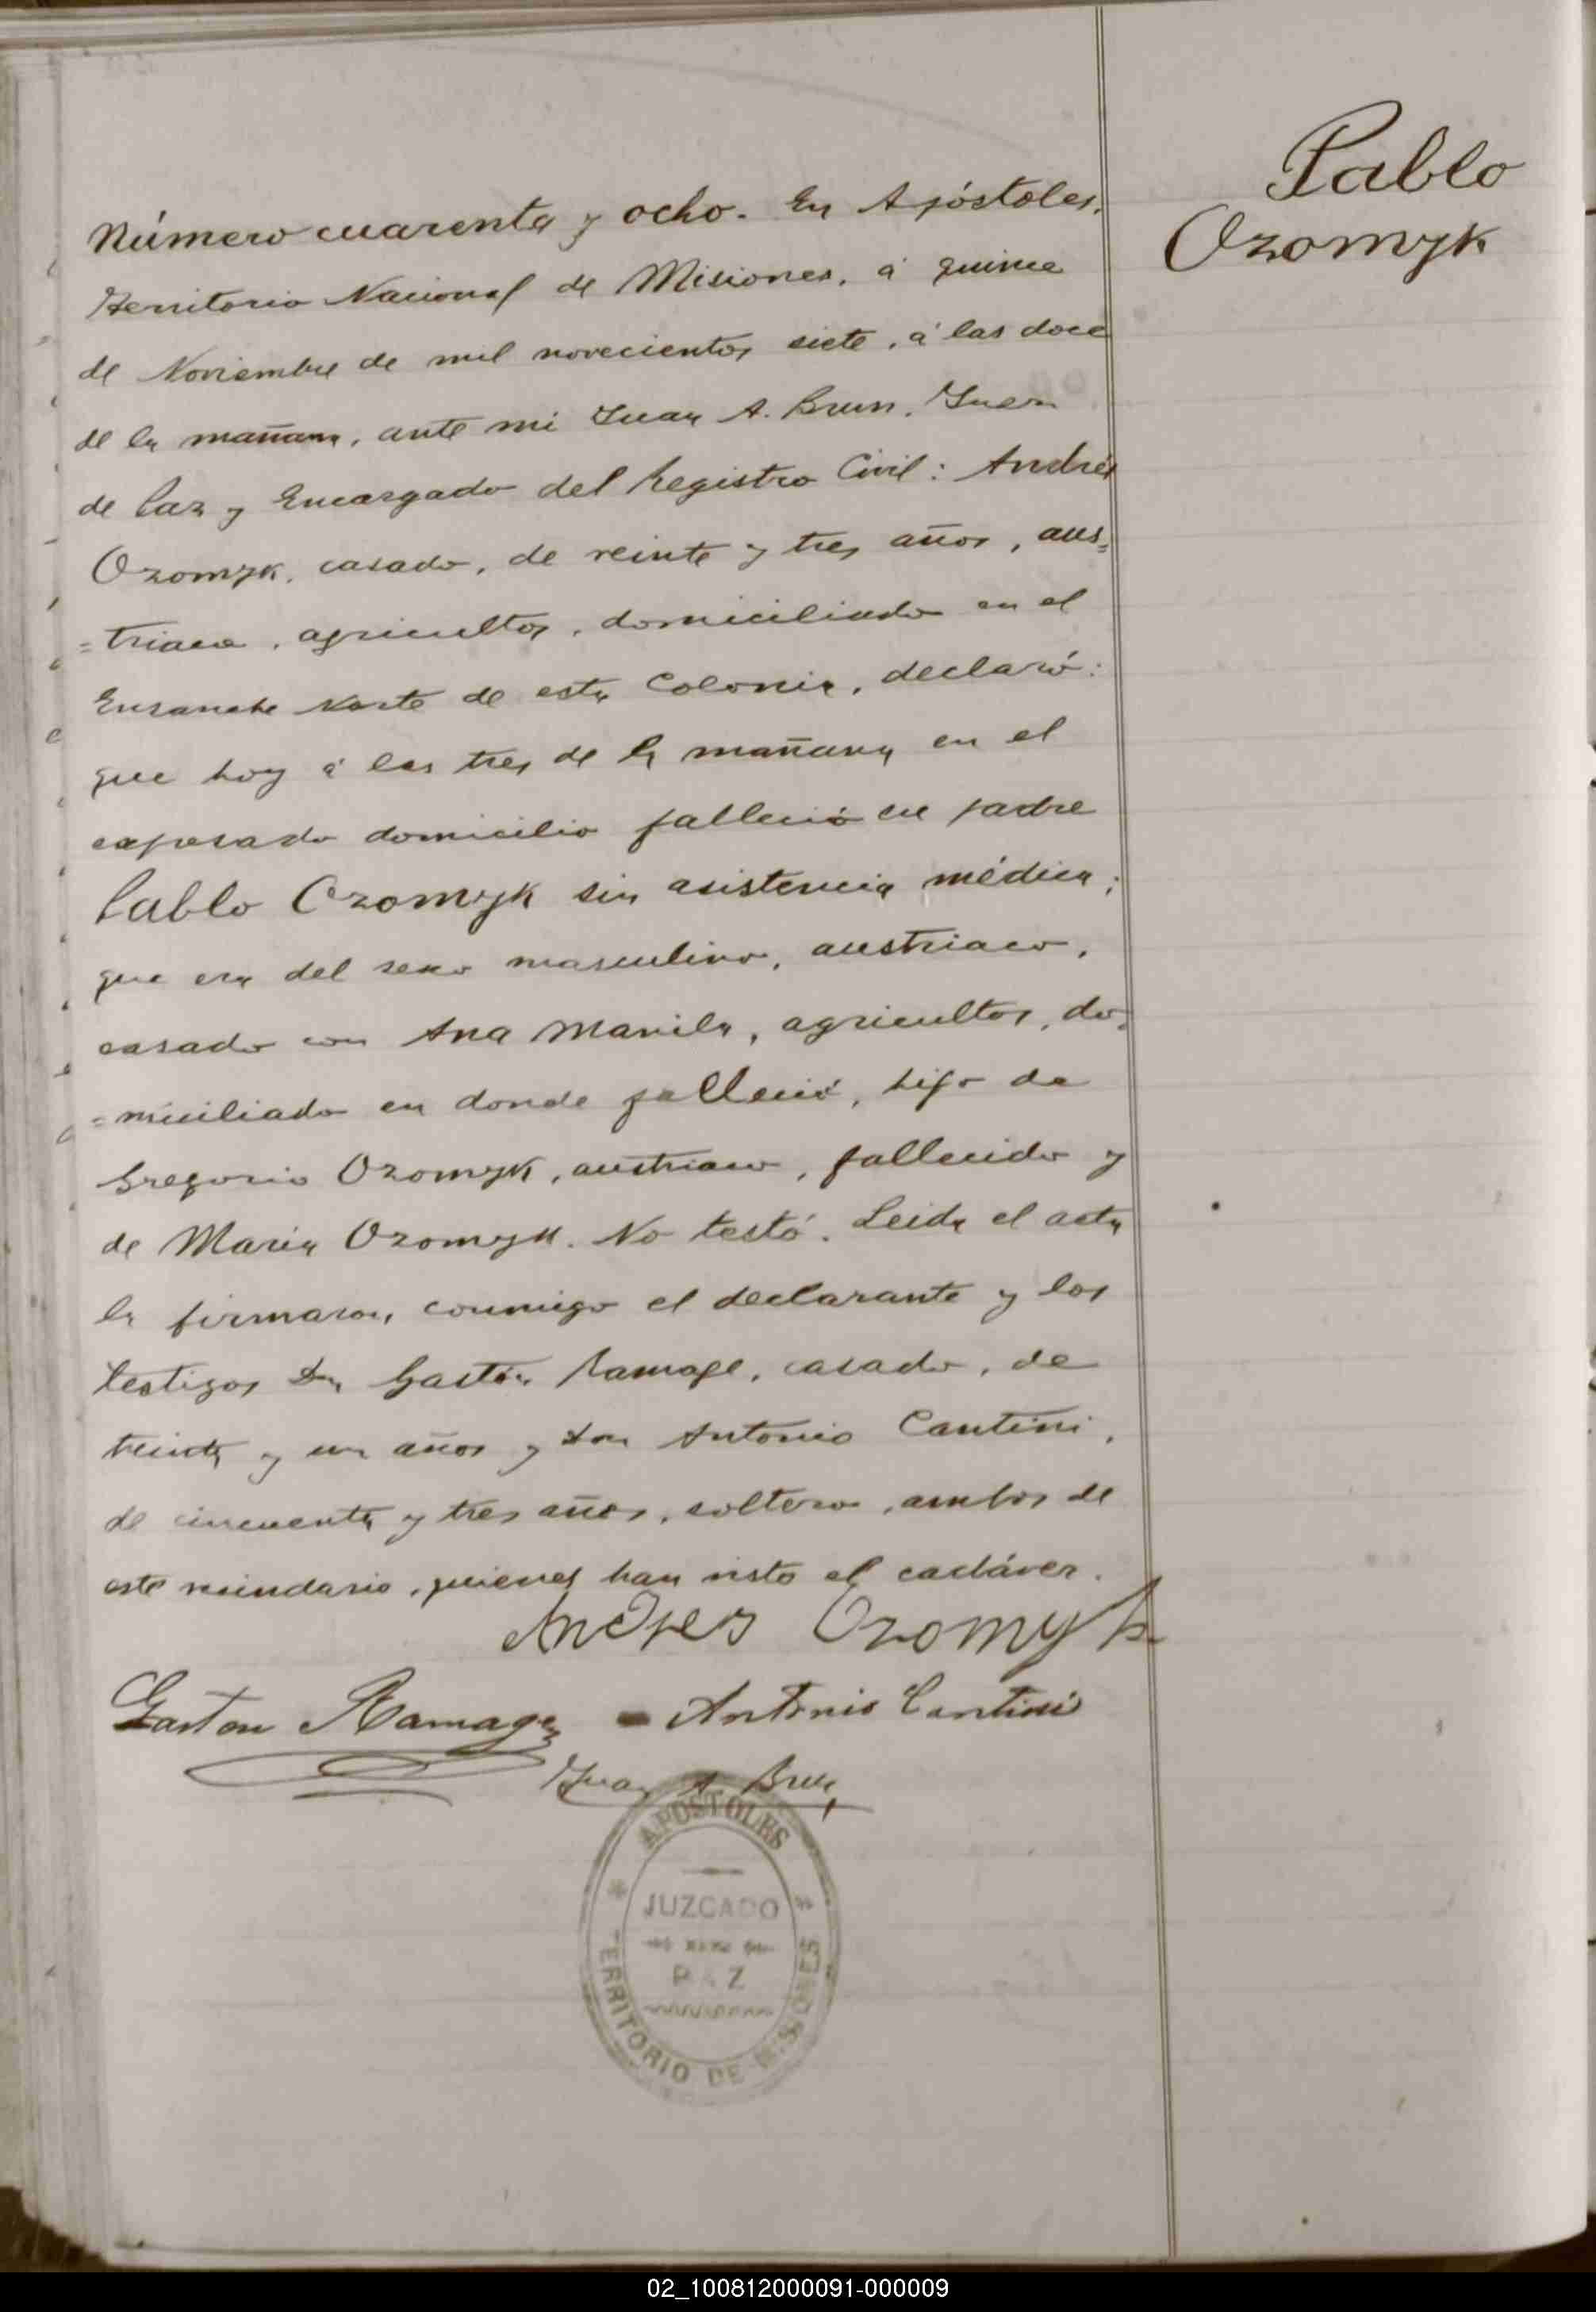 Pablo
Ozomyk
Número cuarenta y ocho. En Apóstoles,
Territorio Nacional de Misiones, á quince
de Noviembre de mil novecientos siete, á las doce
de la mañana, ante mi Juan A. Brun, Juez
de Paz y Encargado del Registro Civil: Andrés
Ozomyk, casado, de veinte y tres años, aus=
=triaco, agricultor, domiciliado en el
Ensanche Norte de esta Colonia, declaró:
que hoy á las tres de la mañana en el
expresado domicilio falleció su padre
Pablo Ozomyk sin asistencia médica;
que era del sexo masculino, austriaco,
casado con Ana Manila, agricultor, do=
=miciliado en donde falleció, hijo de
Gregorio Ozomyk, austriaco, fallecido y
de María Ozomyk. No testó. Leida el acta
la firmaron, conmigo el declarante y los
testigos Don Gastón Ramage, casado, de
treinta y un años y don Antonio Cantini,
de cincuenta y tres años, soltero, ambos de
este vecindario, quienes han visto el cadáver.
Andres Ozomyk
Gaston Ramage - Antonio Cantini
Juan A. Brun
APOSTOLES
JUZGADO
PAZ
TERRITORIO DE MISIONES
02_100812000091-000009